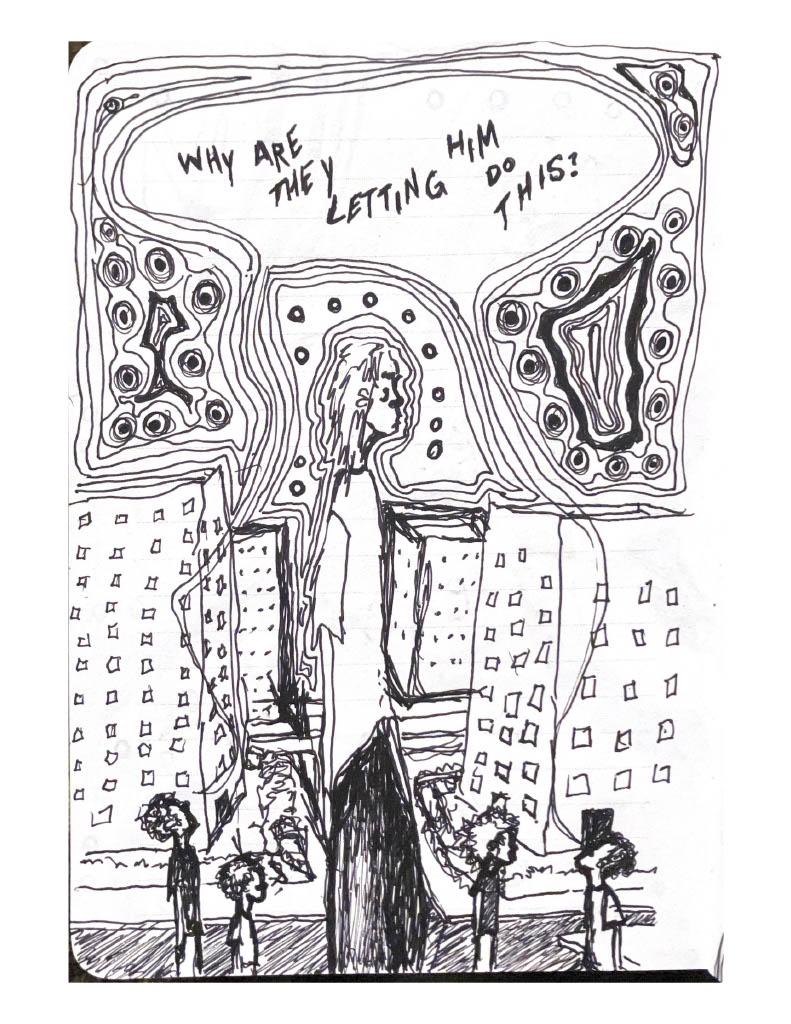 WHY ARE THEY LETTING HIM DO THIS?